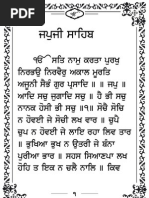 ਜਪੁਜੀ ਸਾਹਿਬ
ੴ ਸਤਿ ਨਾਮੁ ਕਰਤਾ ਪੁਰਖੁ
ਨਿਰਭਉ ਨਿਰਵੈਰੁ ਅਕਾਲ ਮੂਰਤਿ
ਅਜੂਨੀ ਸੈਭੰ ਗੁਰ ਪ੍ਰਸਾਦਿ ॥ ॥ ਜਪੁ ॥
ਆਦਿ ਸਚੁ ਜੁਗਾਦਿ ਸਚੁ ॥ ਹੈ ਭੀ ਸਚੁ
ਨਾਨਕ ਹੋਸੀ ਭੀ ਸਚੁ ॥੧॥ ਸੋਚੈ ਸੋਚਿ
ਨ ਹੋਵਈ ਜੇ ਸੋਚੀ ਲਖ ਵਾਰ ॥ ਚੁਪੈ
ਚੁਪ ਨ ਹੋਵਈ ਜੇ ਲਾਇ ਰਹਾ ਲਿਵ ਤਾਰ
॥ ਭੁਖਿਆ ਭੁਖ ਨ ਉਤਰੀ ਜੇ ਬੰਨਾ
ਪੁਰੀਆ ਭਾਰ ॥ ਸਹਸ ਸਿਆਣਪਾ ਲਖ
ਹੋਹਿ ਤ ਇਕ ਨ ਚਲੈ ਨਾਲਿ ॥ ਕਿਵ
੧